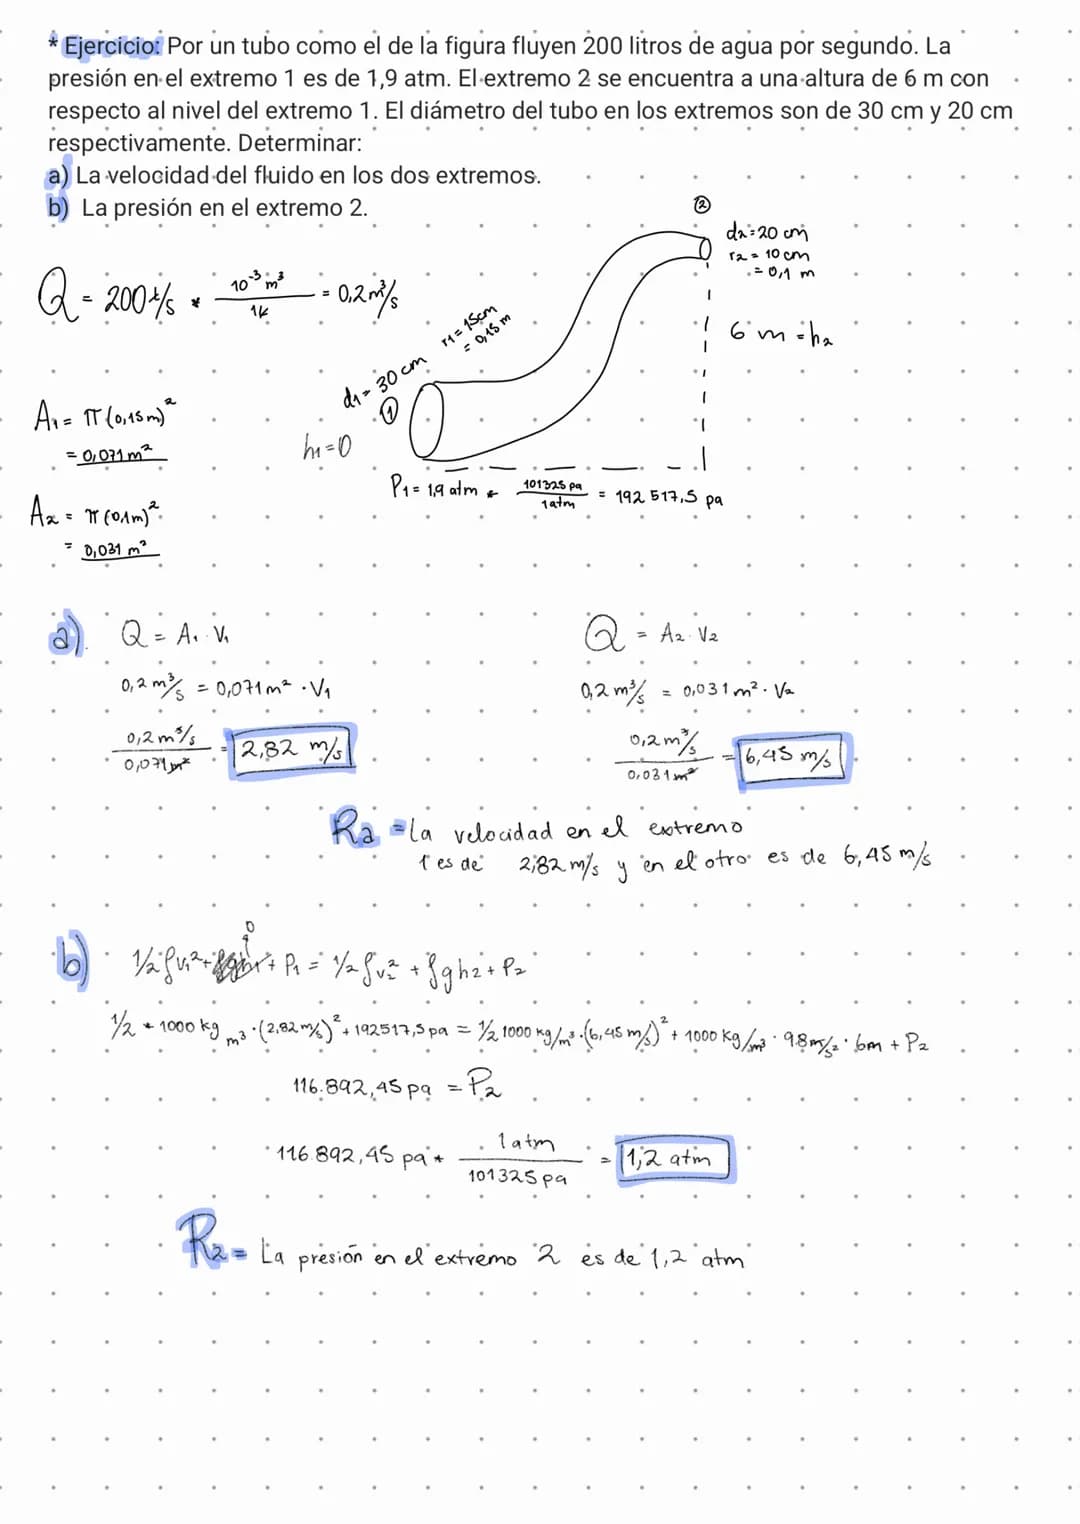 * Ejercicio: Por un tubo como el de la figura fluyen 200 litros de agua por segundo. La
presión en el extremo 1 es de 1,9 atm. El extremo 2 se encuentra a una altura de 6 m con
respecto al nivel del extremo 1. El diámetro del tubo en los extremos son de 30 cm y 20 cm
respectivamente. Determinar:
a) La velocidad del fluido en los dos extremos.
b) La presión en el extremo 2.
②
d2 = 20 cm
r2 = 10 cm
= 0,1 m
6 m = h2
Q = 200 ℓ/s * 10⁻³ m³ / 1ℓ = 0,2 m³/s
r1 = 15cm
= 0,15 m
d1 = 30 cm
①
h1 = 0
A1 = π (0,15 m)²
= 0,071 m²
P1 = 1,9 atm * 101325 pa / 1 atm = 192 517,5 pa
A2 = π (0,1m)²
= 0,031 m²
a) Q = A1 · V1
Q = A2 · V2
0,2 m³/s = 0,071 m² · V1
0,2 m³/s = 0,031 m² · V2
0,2 m³/s / 0,071 m² = 2,82 m/s
0,2 m³/s / 0,031 m² = 6,45 m/s
Ra = La velocidad en el extremo
1 es de 2,82 m/s y en el otro es de 6,45 m/s
0
b) 1/2 ρv1² + ρgh1 + P1 = 1/2 ρv2² + ρgh2 + P2
1/2 * 1000 kg/m³ · (2,82 m/s)² + 192517,5 pa = 1/2 1000 kg/m³ · (6,45 m/s)² + 1000 kg/m³ · 9.8 m/s² · 6m + P2
116.892,45 pa = P2
116.892,45 pa * 1 atm / 101325 pa = 1,2 atm
R2 = La presión en el extremo 2 es de 1,2 atm